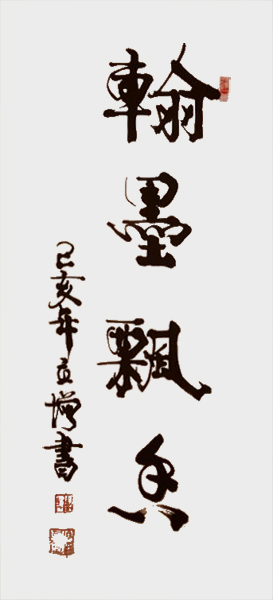 翰墨飘香
己亥年立增書